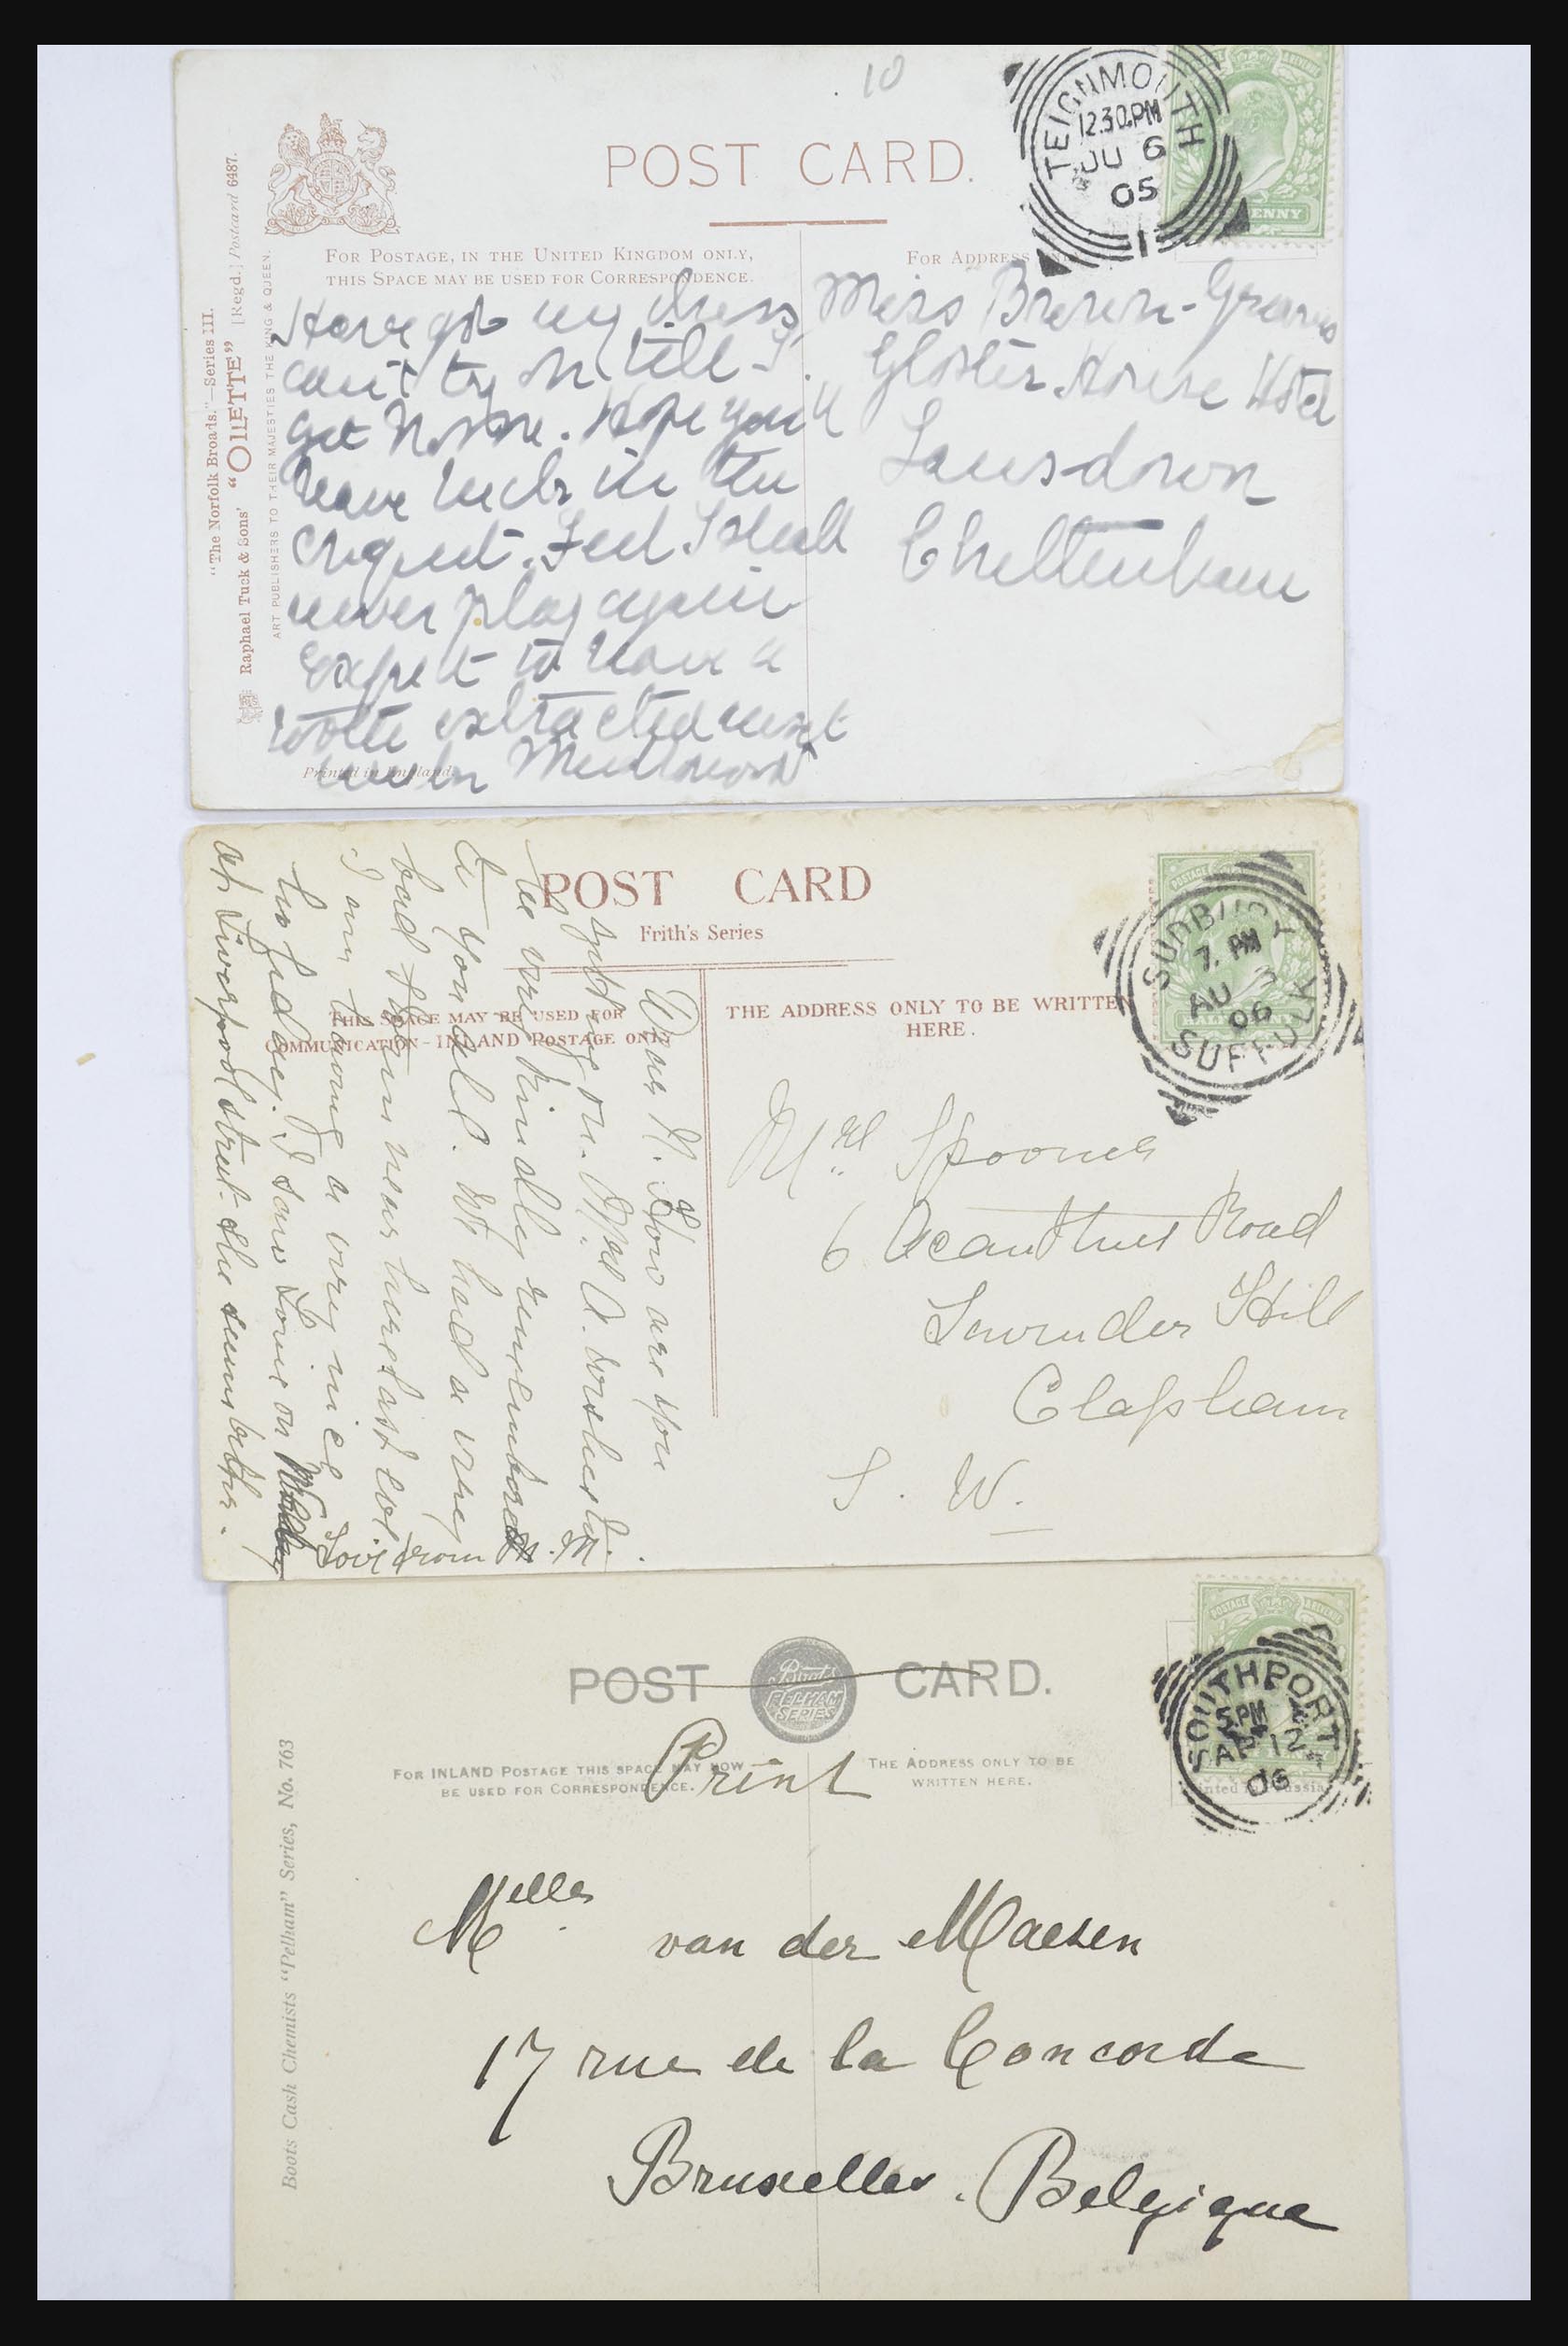 10
POST CARD.
TEIGNMOUTH
12.30.PM
JU 6
05
1
FOR POSTAGE, IN THE UNITED KINGDOM ONLY,
THIS SPACE MAY BE USED FOR CORRESPONDENCE.
FOR ADDRESS
"The Norfolk Broads."—Series III.
Raphael Tuck & Sons' "OILETTE" [Regd.] Postcard 6487.
ART PUBLISHERS TO THEIR MAJESTIES THE KING & QUEEN.
Have got my dress,
can't try on till I
get home. Hope you'll
have luck in the
croquet. Feel I shall
never play again
Expect to have a
tooth extracted next
week
Printed in England
Miss Brown-Greaves
Gloster House Hotel
Lansdown
Cheltenham
POST CARD
Frith's Series
THIS SPACE MAY BE USED FOR
COMMUNICATION - INLAND POSTAGE ONLY
THE ADDRESS ONLY TO BE WRITTEN
HERE.
SUDBURY
7. PM
AU 3
06
SUFFOLK
Dear N. How are you
getting on. Mrs A. wishes to
be very kindly remembered
to you all. We had a very
bad storm near here last eve.
I am having a very nice
holiday. I saw Louie on
at Liverpool street. she seems better.
Love from
Mrs Spooner
6 Acanthus Road
Lavender Hill
Clapham
S. W.
POST CARD.
Boots
PELHAM
SERIES
SOUTHPORT
5 PM
AP 12
06
FOR INLAND POSTAGE THIS SPACE MAY NOW
BE USED FOR CORRESPONDENCE.
THE ADDRESS ONLY TO BE
WRITTEN HERE.
Print
Boots Cash Chemists "Pelham" Series, No. 763
Melles van der Maesen
17 rue de la Concorde
Bruxelles. Belgique